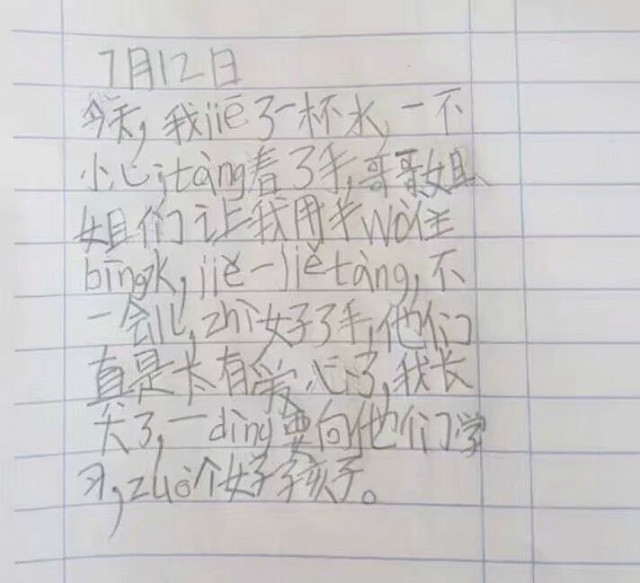 7月12日
今天,我jiē了一杯水,一不
小心,tàng着了手,哥哥姐
姐们让我用手wò住
bīng水,jiě一jiětàng,不
一会儿,zhì好了手,他们
真是太有爱心了,我长
大了,一dìng要向他们学
习,zuò个好孩子。